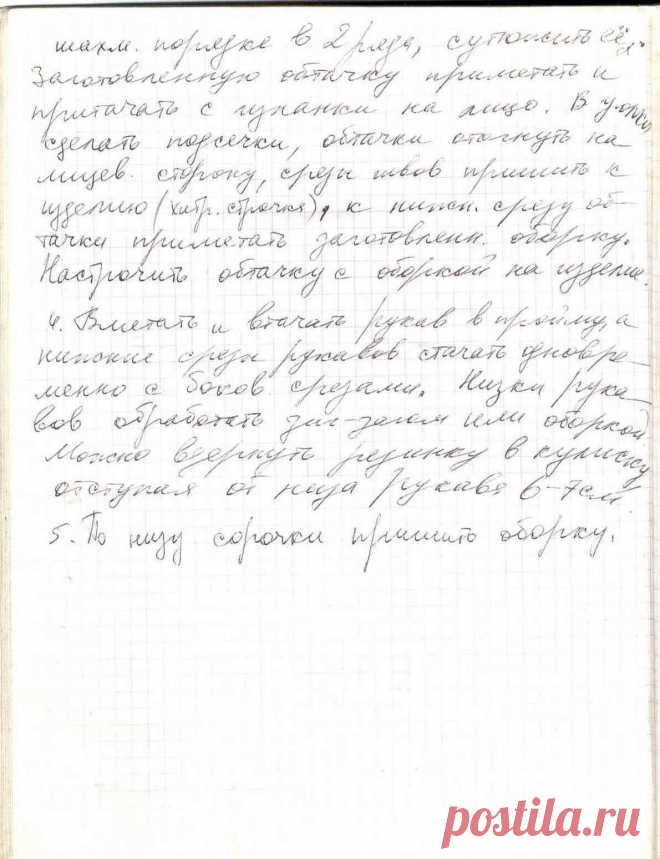 шахм. порядке в 2 ряда, сутюжить её.
Заготовленную обтачку приметать и
притачать с изнанки на лицо. В уголках
сделать подсечки, обтачки отогнуть на
лицев. сторону, срезы швов пришить к
изделию (хитр. строчка), к нижн. срезу об-
тачки приметать заготовленн. оборку.
Настрочить обтачку с оборкой на изделие.
4. Вметать и втачать рукав в пройму, а
нижние срезы рукавов стачать одновре-
менно с боков. срезами. Низки рука-
вов обработать зиг-загом или оборкой
Можно вдернуть резинку в кулиску
отступая от низа рукава 6-7 см.
5. По низу сорочки пришить оборку.
postila.ru